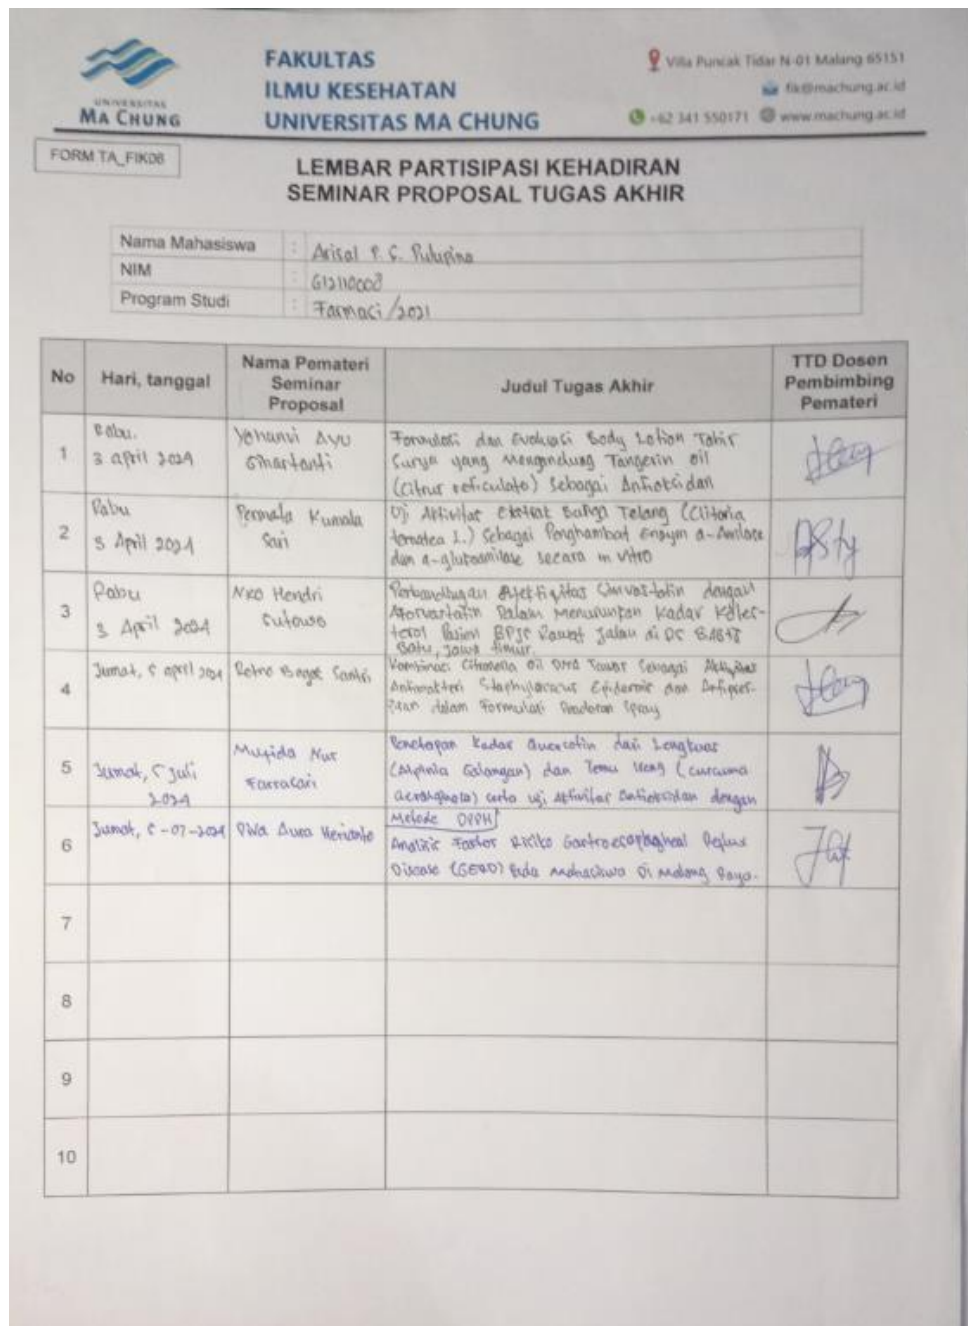 UNIVERSITAS
MA CHUNG
FAKULTAS
ILMU KESEHATAN
UNIVERSITAS MA CHUNG
Villa Puncak Tidar N-01 Malang 65151
fik@machung.ac.id
+62 341 550171 www.machung.ac.id
FORM TA_FIK06
LEMBAR PARTISIPASI KEHADIRAN
SEMINAR PROPOSAL TUGAS AKHIR
Nama Mahasiswa : Arisal P. S.
NIM : 612110008
Program Studi : Farmaci/2021
No
Hari, tanggal
Nama Pemateri
Seminar
Proposal
Judul Tugas Akhir
TTD Dosen
Pembimbing
Pemateri
1
Rabu,
3 april 2024
Yohanvi Ayu
Formulasi dan Evaluasi Body Lotion Tabir
Surya yang Mengandung Tangerin oil
(Citrus reticulata) Sebagai Antioksidan
2
Rabu
3 April 2024
Permala Kumala
Sari
Uji Aktivitas Ekstrak Bunga Telang (Clitoria
ternatea L.) Sebagai Penghambat Enzym a-Amilase
dan secara in vitro
3
Rabu
3 April 2024
Nico Hendri
Sutowo
Perbandingan Efektifitas dengan
Dalam Menurunkan Kadar Koles-
terol Pasien BPJS Rawat Jalan di
Batu, Jawa timur.
4
Jumat, 5 april 2024
Retno Bagos
Kombinasi Citronella oil Sebagai
Staphylococcus Epidermis dan
dalam Formulasi Spray
5
Jumat, 5 juli
2024
Mufida Nur
Farrasari
Penetapan Kadar Quercetin dari Lengkuas
(Alpinia Galangan) dan Temu (curcuma
serta uji Aktivitas Antioksidan dengan
Metode DPPH
6
Jumat, 5-07-2024
Diva Aura Herianto
Analisis Faktor Risiko Gastroesophagheal Reflux
Disease (GERD) Pada Mahasiswa Di Malang Raya.
7
8
9
10